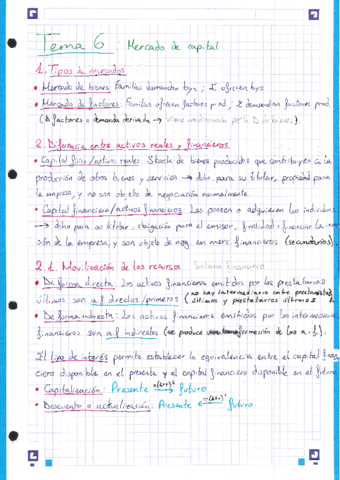 Tema 6: Mercado de capital
1. Tipos de mercados
• Mercado de bienes: Familias demandan bys, I ofrecen bys
• Mercado de factores: Familias ofrecen factores prod., I demandan factores prod.
(D factores = demanda derivada → viene por la D de bienes).
2. Diferencia entre activos reales y financieros
• Capital físico/activos reales: Stocks de bienes producidos que contribuyen a la
producción de otros bienes y servicios → dcho para su titular, propiedad para
la empresa, y no son objeto de negociación normalmente.
• Capital financiero/activos financieros: Los poseen o adquieren los individuos
→ dcho para su titular, obligación para el emisor, finalidad = financiar la inver-
sión de la empresa, y son objeto de neg. en merc. financieros (secundarios).
2.1. Movilización de los recursos Sistema financiero
• De forma directa: Los activos financieros emitidos por los prestatarios
últimos son a.f directos/primarios (no hay intermediario entre prestamistas
últimos y prestatarios últimos).
• De forma indirecta: Los activos financieros emitidos por los intermediarios
financieros son a.f indirectos (se produce transformación de los a.f.).
El tipo de interés permite establecer la equivalencia entre el capital finan-
ciero disponible en el presente y el capital financiero disponible en el futuro
• Capitalización: Presente → futuro
• Descuento o actualización: Presente ← futuro.